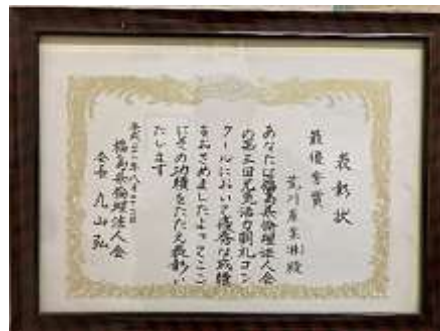 表彰状
最優秀賞
荒川産業㈱殿
あなたは福島県倫理法人会
の第三回元気活力朝礼コン
クールにおいて優秀な成績
をおさめましたよってここ
にその功績をたたえ表彰い
たします
福島県倫理法人会
会長 丸山弘